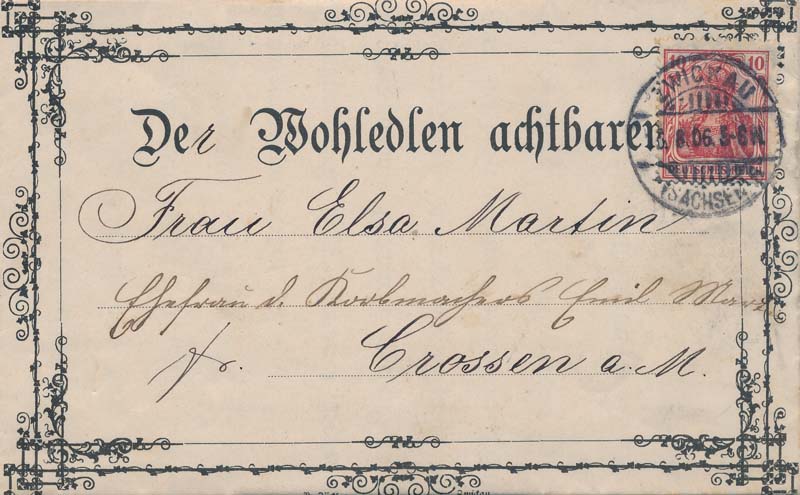 10
ZWICKAU
8.06. 5-6 N
DEUTSCHES REICH
(SACHSEN)
Der Wohledlen achtbaren
Frau Elsa Martin
Ehefrau d. Korbmachers Emil
fr. Crossen a. M.
Zwickau